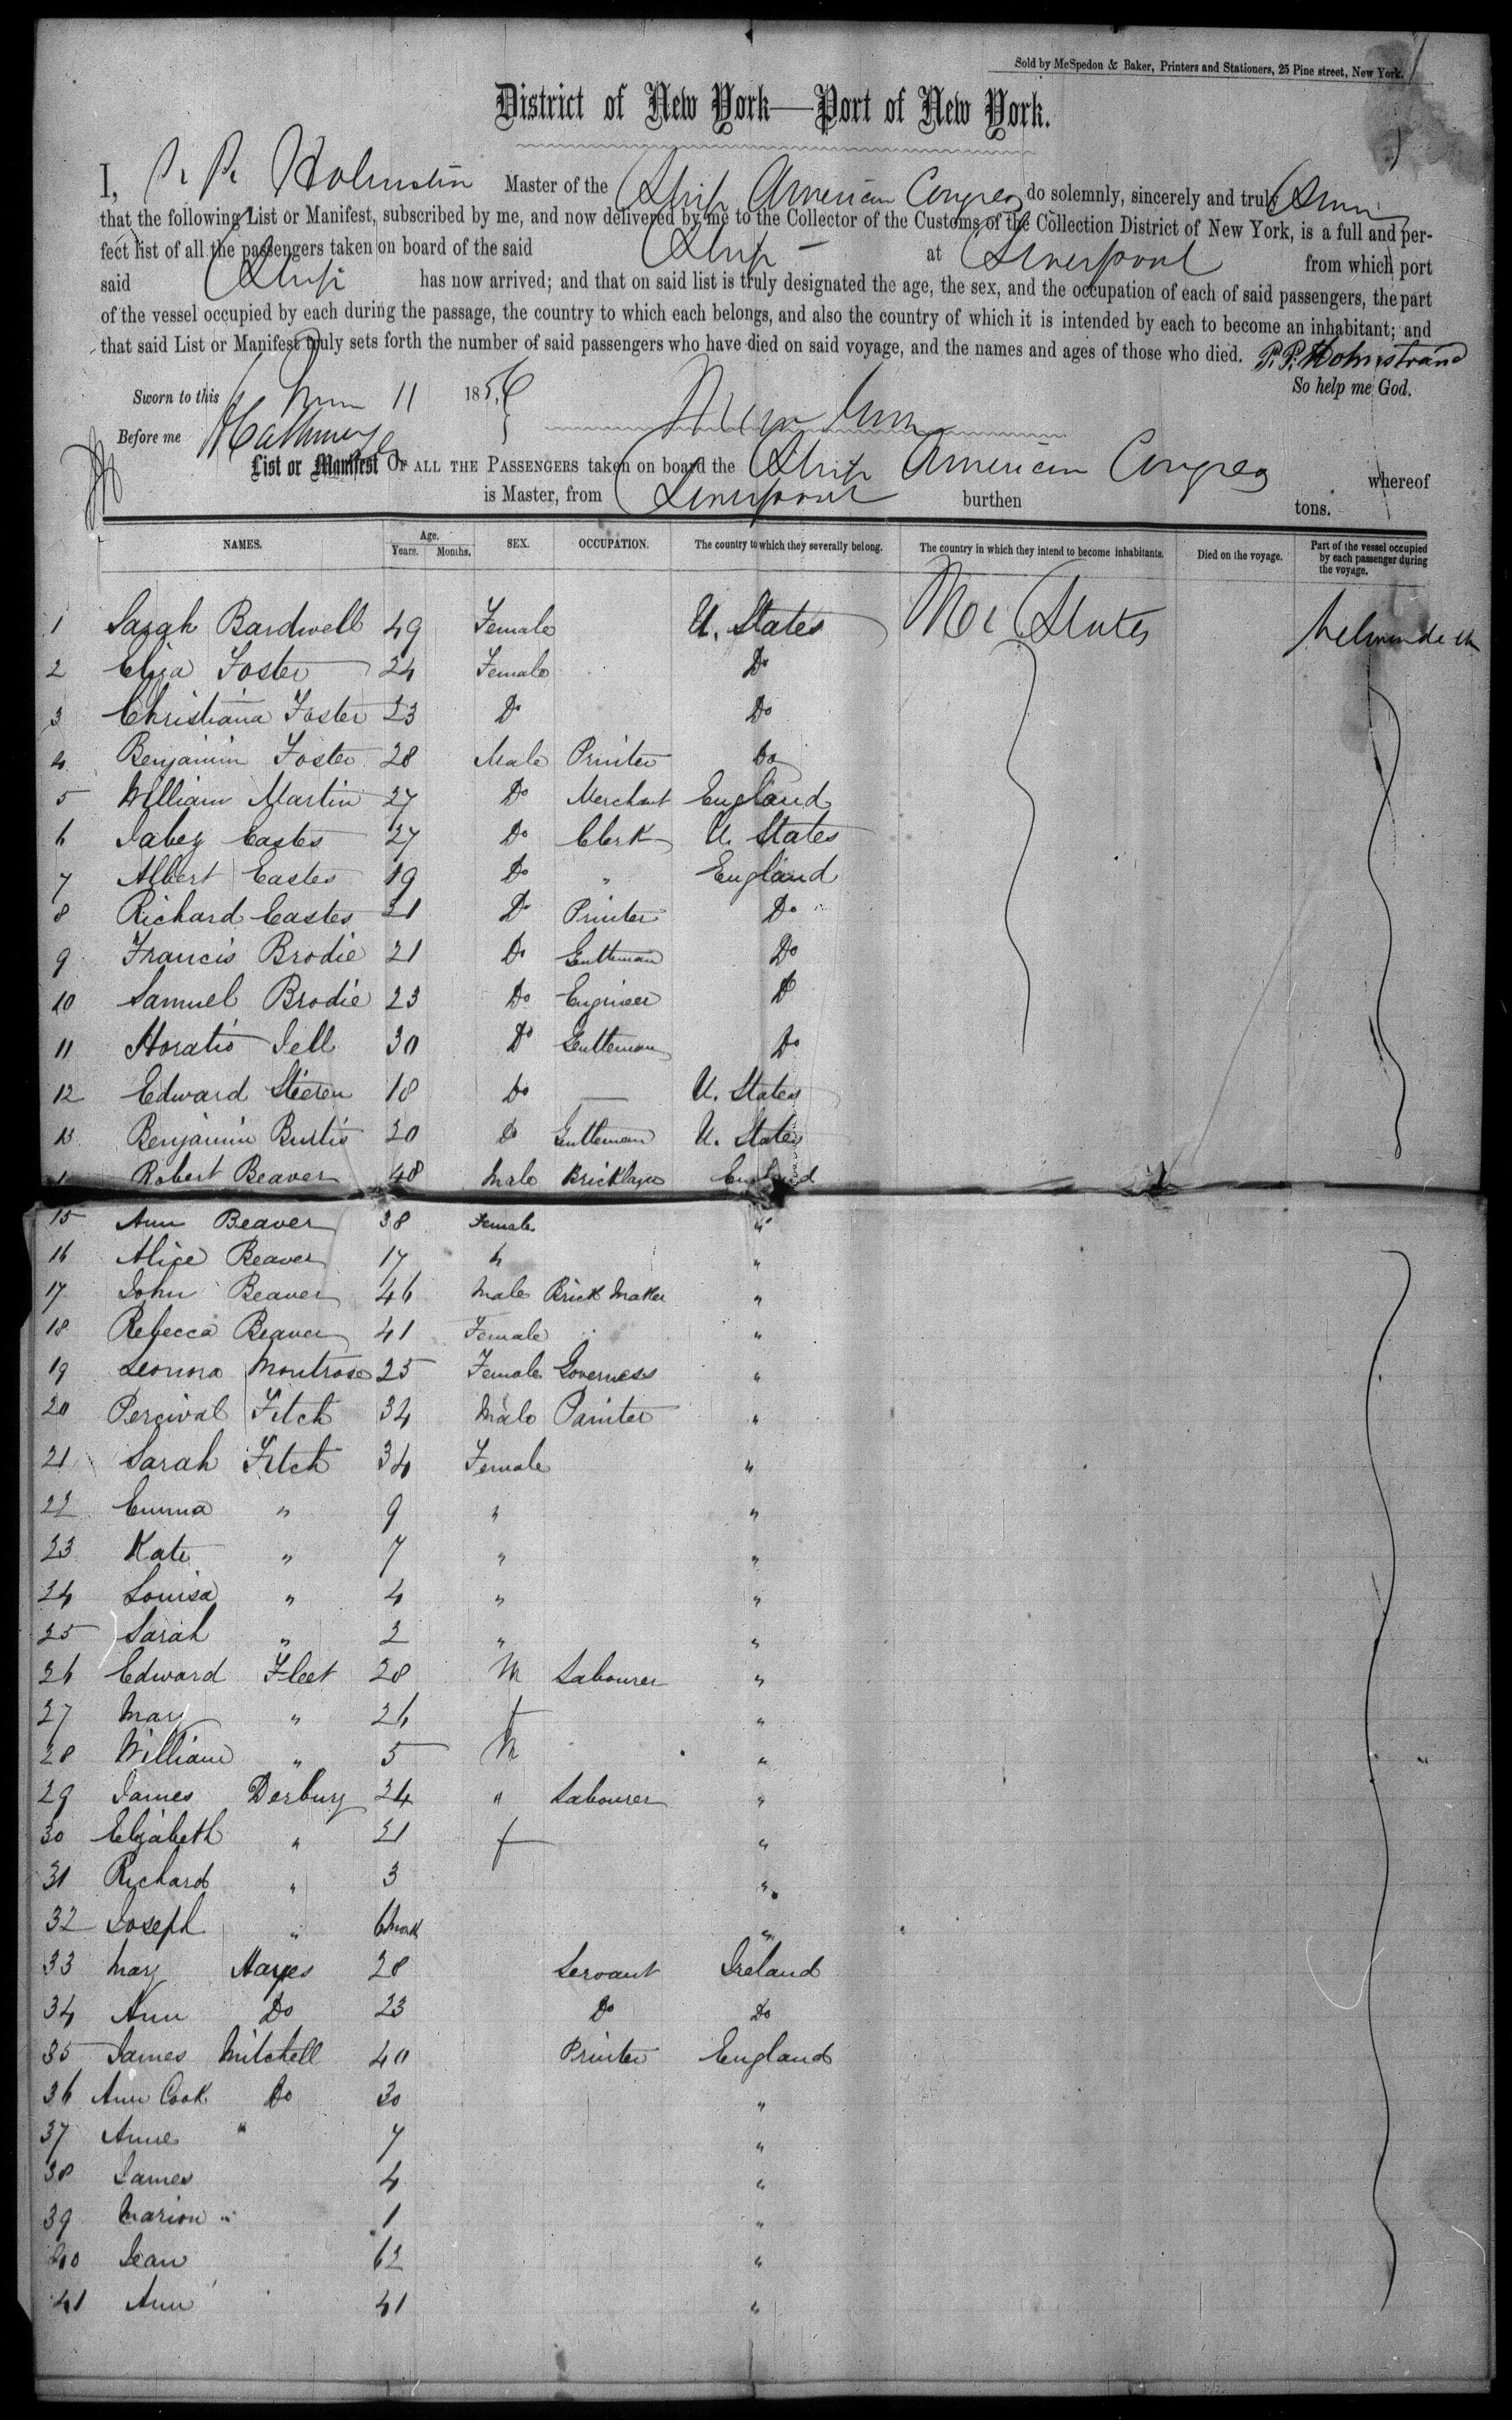 Sold by McSpedon & Baker, Printers and Stationers, 25 Pine street, New York.
District of New York—Port of New York.
I, Master of the Ship American Congress do solemnly, sincerely and truly
that the following List or Manifest, subscribed by me, and now delivered by me to the Collector of the Customs of the Collection District of New York, is a full and per-
fect list of all the passengers taken on board of the said Ship at Liverpool from which port
said Ship has now arrived; and that on said list is truly designated the age, the sex, and the occupation of each of said passengers, the part
of the vessel occupied by each during the passage, the country to which each belongs, and also the country of which it is intended by each to become an inhabitant; and
that said List or Manifest truly sets forth the number of said passengers who have died on said voyage, and the names and ages of those who died. P. P. Holmstrand
Sworn to this 11 1856 So help me God.
Before me
List or Manifest OF ALL THE PASSENGERS taken on board the Ship American Congress whereof
is Master, from Liverpool burthen tons.
NAMES. Age. Years. Months. SEX. OCCUPATION. The country to which they severally belong. The country in which they intend to become inhabitants. Died on the voyage. Part of the vessel occupied by each passenger during the voyage.
1 Sarah Bardwell 49 Female U. States States
2 Eliza Foster 24 Female Do
3 Christiana Foster 23 Do Do
4 Benjamin Foster 28 Male Printer Do
5 William Martin 27 Do Merchant England
6 Jabez Eastes 27 Do Clerk U. States
7 Albert Eastes 19 Do " England
8 Richard Eastes 21 Do Printer Do
9 Francis Brodie 21 Do Gentleman Do
10 Samuel Brodie 23 Do Engineer Do
11 Horatio Jell 30 Do Gentleman Do
12 Edward Stieren 18 Do — U. States
13 Benjamin Burtis 20 Do Gentleman U. States
Robert Beaver 48 Male Bricklayer England
15 Ann Beaver 38 Female "
16 Alice Beaver 17 " "
17 John Beaver 46 Male Brick Maker "
18 Rebecca Beaver 41 Female "
19 Leonora Montrose 25 Female Governess "
20 Percival Fitch 34 Male Painter "
21 Sarah Fitch 34 Female "
22 Emma " 9 " "
23 Kate " 7 " "
24 Louisa " 4 " "
25 Sarah " 2 " "
26 Edward Fleet 28 M Labourer "
27 Mary " 26 f "
28 William " 5 M "
29 James Derbury 24 " Labourer "
30 Elizabeth " 21 f "
31 Richard " 3 "
32 Joseph " 6 "
33 Mary Hayes 28 Servant Ireland
34 Ann Do 23 Do Do
35 James Mitchell 40 Printer England
36 Ann Cook Do 30 "
37 Anne " 7 "
38 James 4 "
39 Marion " 1 "
40 Jean 62 "
41 Ann 41 "